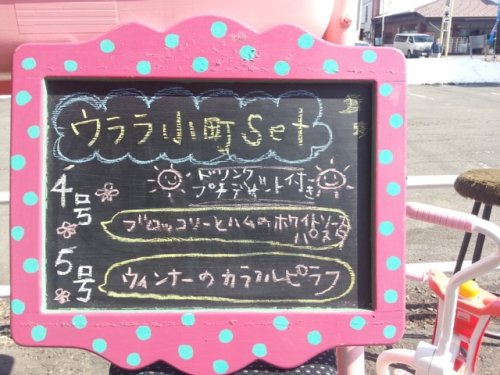 ウララ小町Set
ドリンク
プチデザート付き
4号
ブロッコリーとハムのホワイトソース
パスタ
5号
ウィンナーのカラフルピラフ